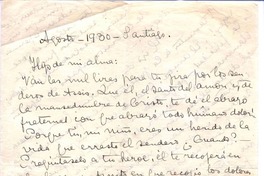 Agosto - 1930 - Santiago.
Hijo de mi alma:
Van las mil liras para tu jira por los sen
deros de Asis. Que él, el santo del amor y de
la mansedumbre de Cristo, te dé el abrazo
fraternal con que abrazó todo humano dolor!
Porque tú, mi niño, eres un herido de la
vida que erraste el sendero. ¿Cuando?
Pregúntaselo a tu herol, él te recojerá en
que recojió los dolores